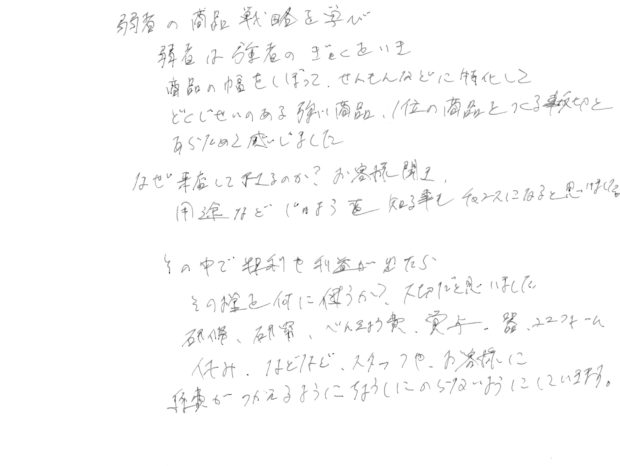 弱者の商品戦略を学び
弱者は強者のぎゃくをいき
商品の幅をしぼって、せんもんなどに特化して
どくじせいのある強い商品、1位の商品をつくる事が大切と
あらためて感じました
なぜ来店して下さるのか? お客様に聞き、
用途など じょうほうを知る事もチャンスになると思いました
その中で粗利や利益が出たら
そのお金を何に使うか?、大切だと思いました
研修、研究、べんきょう費、賞与、器、ユニフォーム
休み、などなど、スタッフや、お客様に
経費がつかえるようにちょうしにのらないようにしていきます。